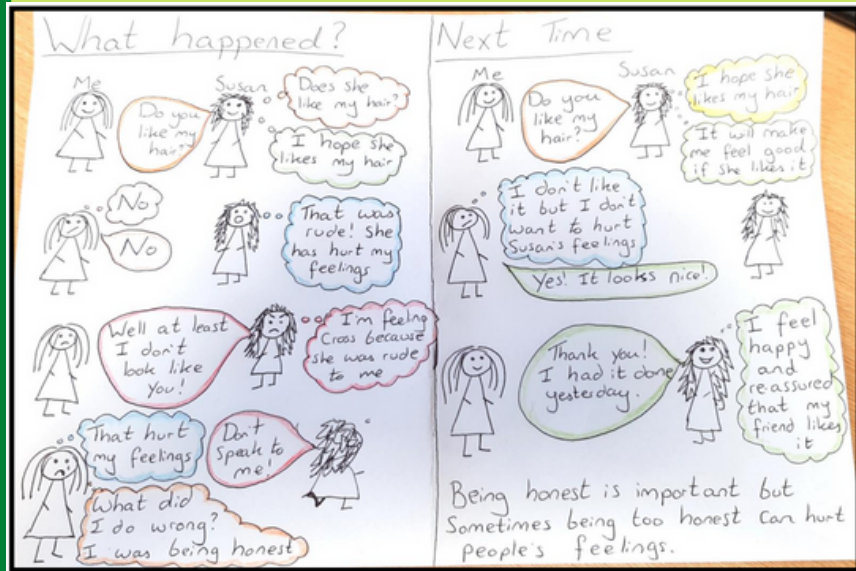 What happened?
Me
Susan
Do you
like my
hair?
Does she
like my hair?
I hope she
likes my hair
No
No
That was
rude! She
has hurt my
feelings
Well at least
I don't
look like
you!
I'm feeling
Cross because
she was rude
to me
That hurt
my feelings
Don't
speak to
me!
What did
I do wrong?
I was being honest
Next Time
Me
Susan
Do you
like my
hair?
I hope she
likes my hair
It will make
me feel good
if she likes it
I don't like
it but I don't
want to hurt
Susan's feelings
Yes! It looks nice!
Thank you!
I had it done
yesterday.
I feel
happy
and
reassured
that my
friend likes
it
Being honest is important but
Sometimes being too honest can hurt
people's feelings.